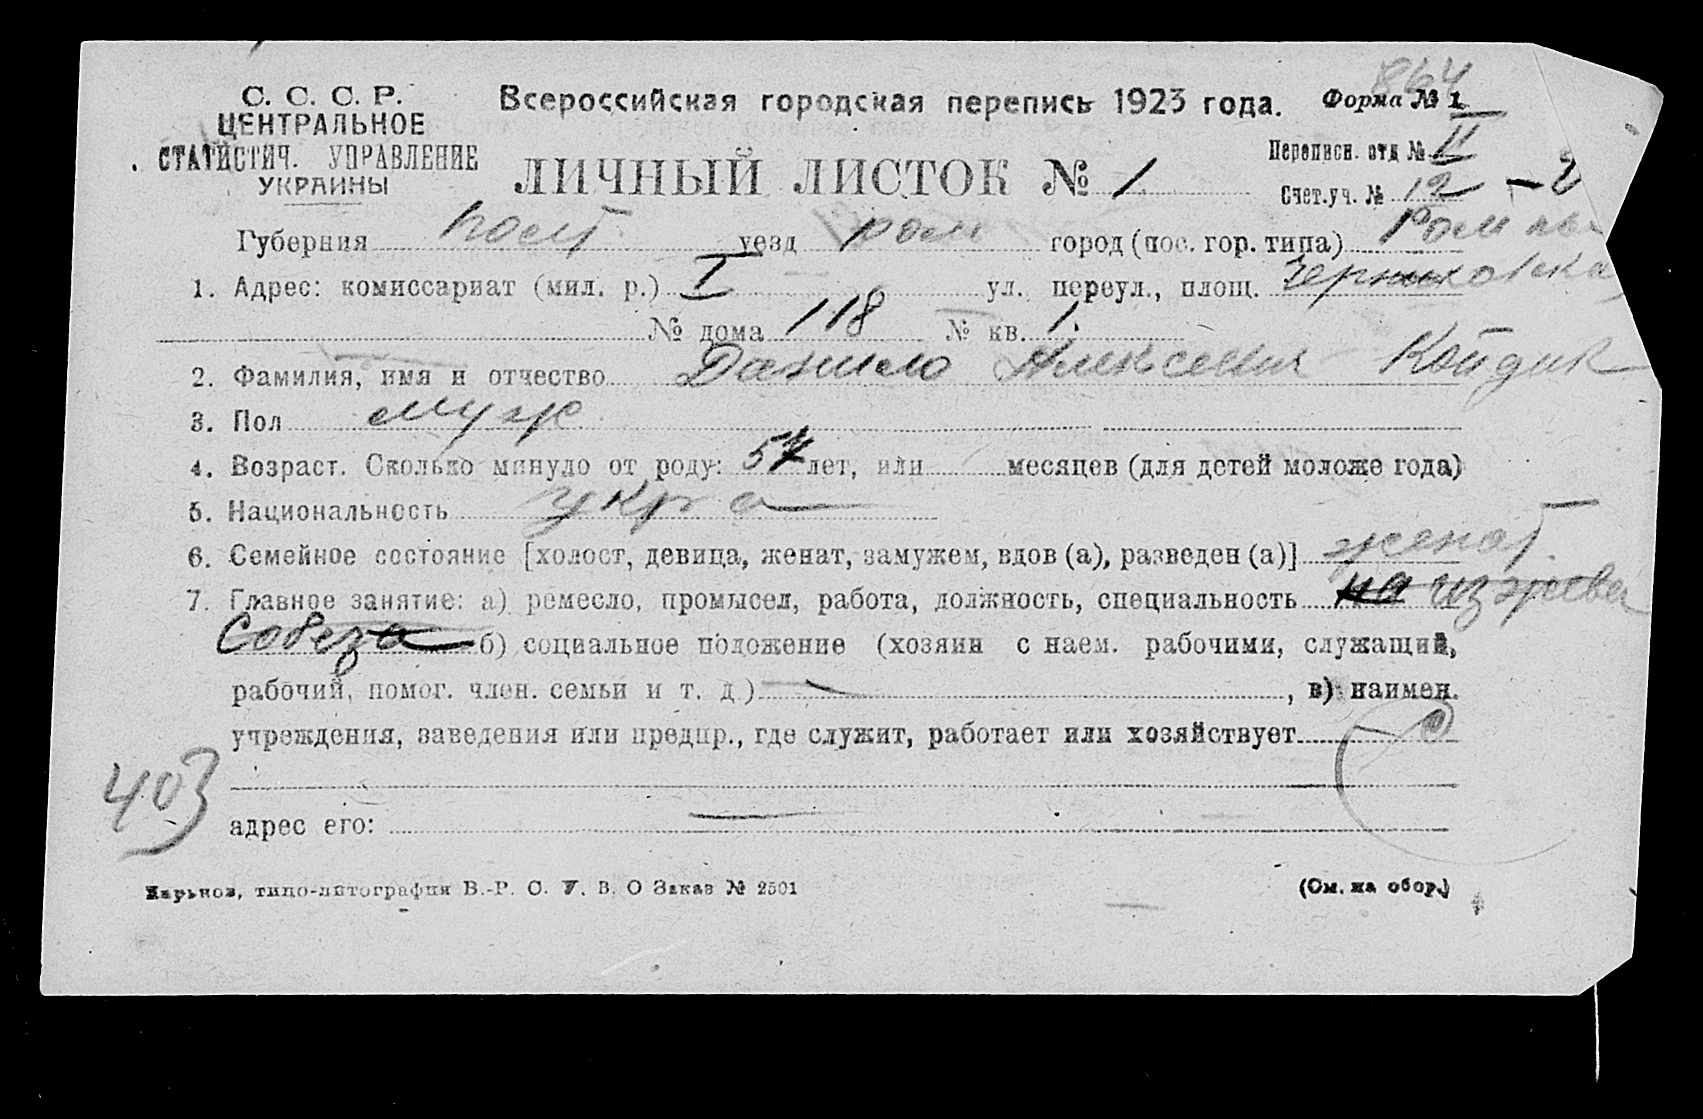 864
С. С. С. Р.
ЦЕНТРАЛЬНОЕ
СТАТИСТИЧ. УПРАВЛЕНИЕ
УКРАИНЫ
Всероссийская городская перепись 1923 года.
Форма № 1
ЛИЧНЫЙ ЛИСТОК № 1
Переписн. отд № II
Счет.уч. № 12 - 2
Губерния Полт. уезд Ром город (пос. гор. типа) Ромны
1. Адрес: комиссариат (мил. р.) I ул. переул., площ.
№ дома 118 № кв. 1.
2. Фамилия, имя и отчество Данило Алексеевич Койдик
3. Пол муж
4. Возраст. Сколько минуло от роду: 57 лет, или месяцев (для детей моложе года)
5. Национальность укра
6. Семейное состояние [холост, девица, женат, замужем, вдов (а), разведен (а)] женат.
7. Главное занятие: а) ремесло, промысел, работа, должность, специальность на иждеве
Собеза б) социальное положение (хозяин с наем. рабочими, служащий,
рабочий, помог. член. семьи и т. д.) — , в) наимен.
учреждения, заведения или предпр., где служит, работает или хозяйствует
403
адрес его: —
Харьков, типо-литография В.-Р. С. У. В. О Заказ № 2501
(См. на обор.)